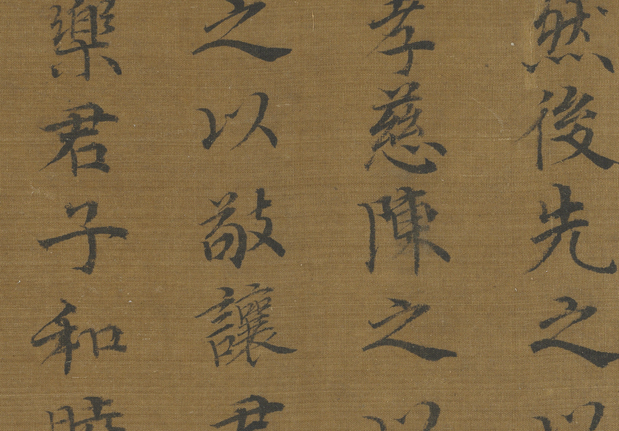 然後先之以
孝慈陳之以
之以敬讓君
樂君子和